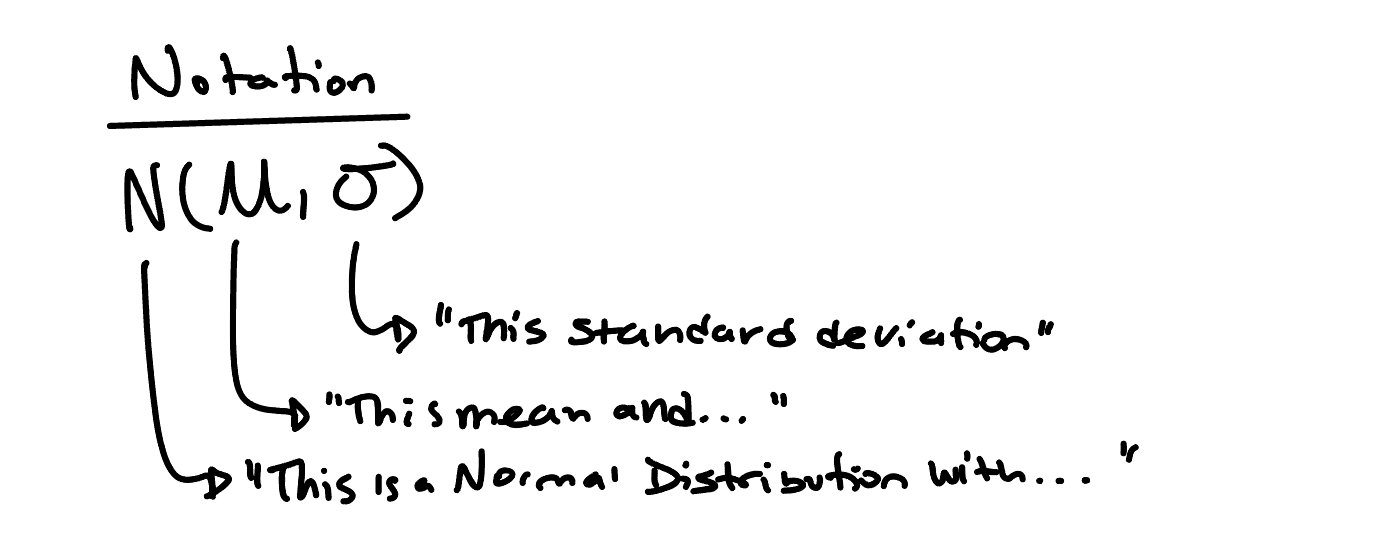 Notation
N(μ, σ)
"This standard deviation"
"This mean and... "
"This is a Normal Distribution with... "